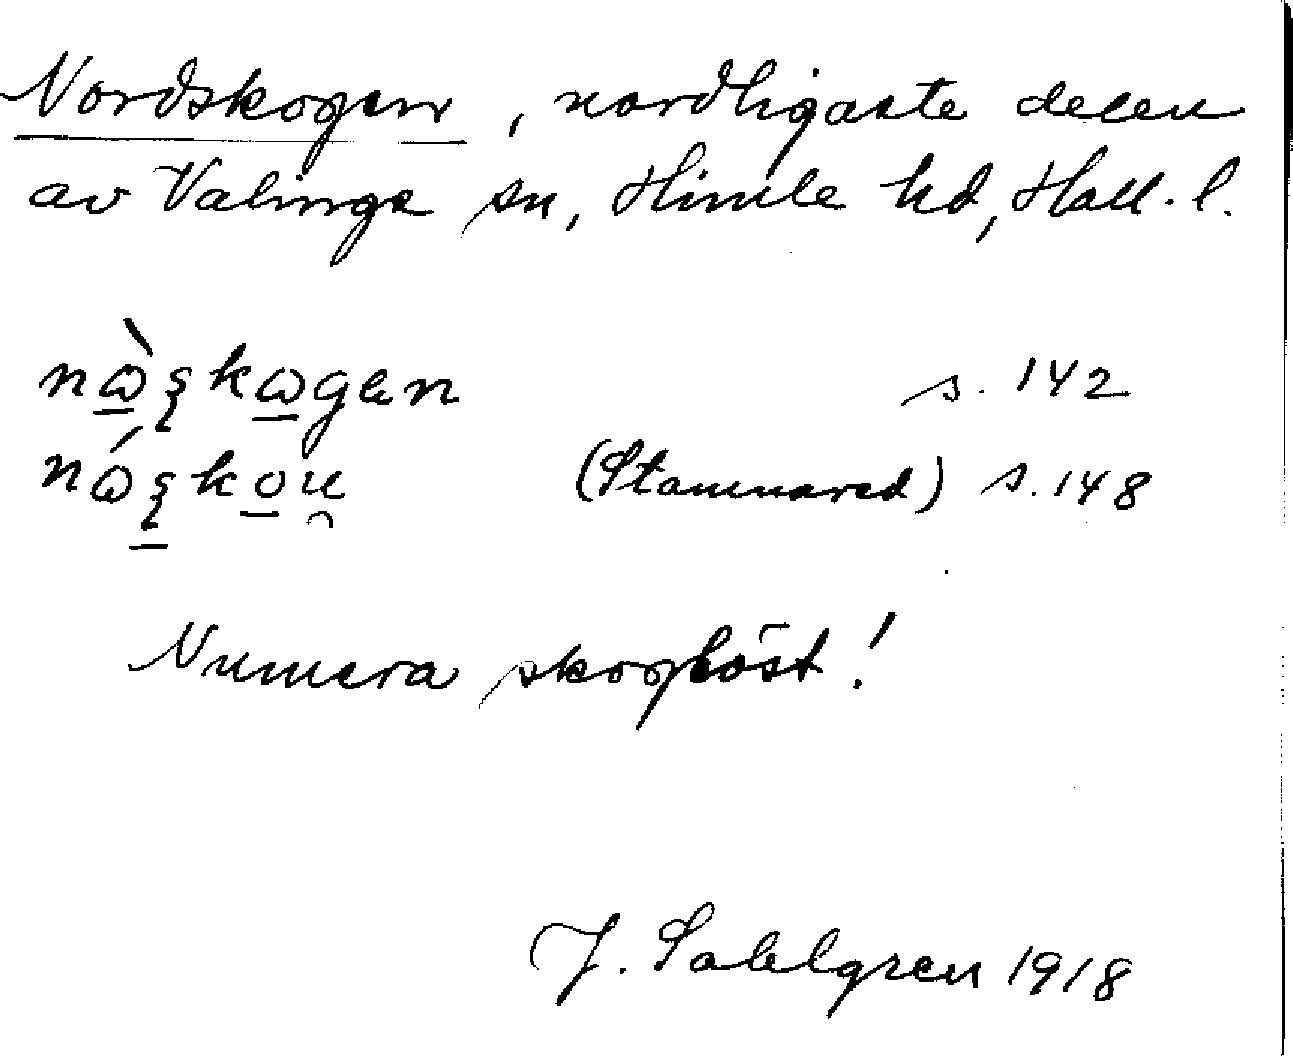 Nordskogen, nordligaste delen
av Valinge sn, Himle hd, Hall. l.
nὼ̱ʂkω̱gen s. 142
nώʂ̱ko̱u̯ (Stamnared) s. 148
Numera skoglöst!
J. Sahlgren 1918